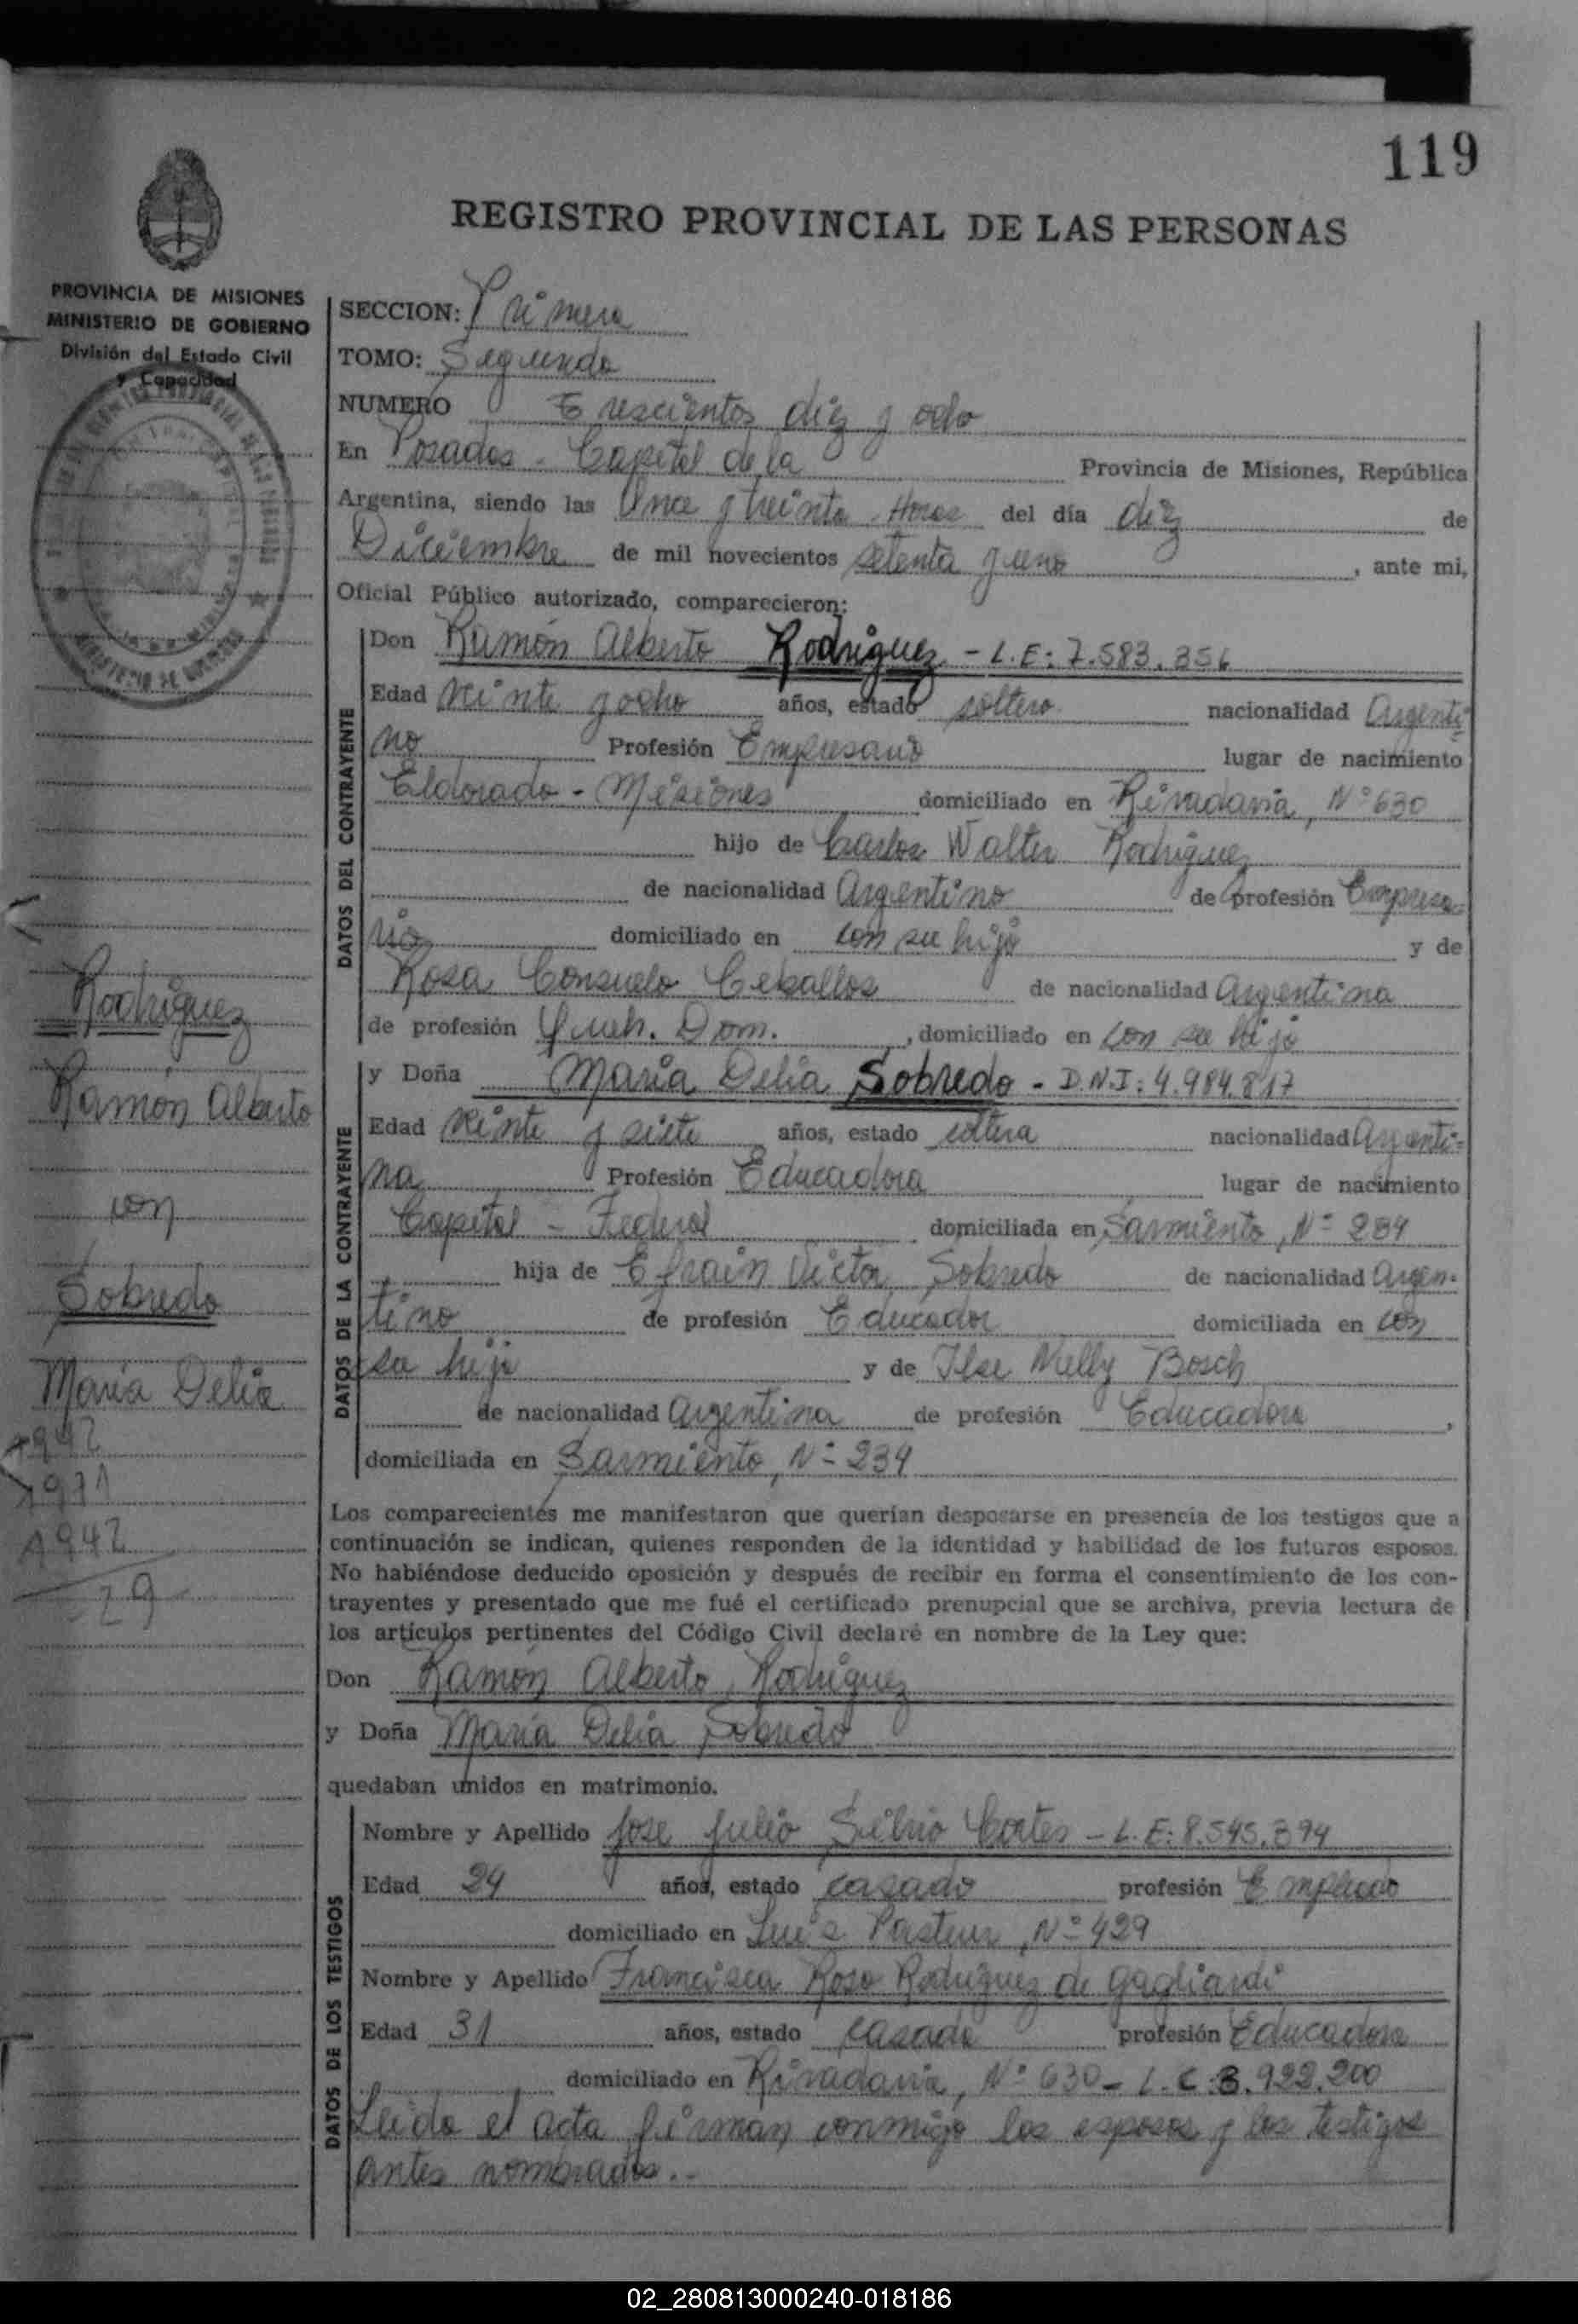 119
REGISTRO PROVINCIAL DE LAS PERSONAS
PROVINCIA DE MISIONES
MINISTERIO DE GOBIERNO
División del Estado Civil
y Capacidad
SECCION: Primera
TOMO: Segundo
NUMERO Trescientos diez y ocho
En Posadas - Capital de la Provincia de Misiones, República
Argentina, siendo las Once y treinta Horas del día diez de
Diciembre de mil novecientos setenta y uno, ante mi,
Oficial Público autorizado, comparecieron:
DATOS DEL CONTRAYENTE
Don Ramón Alberto Rodriguez - L.E: 7.583.356
Edad veinte y ocho años, estado soltero nacionalidad Argenti-
no Profesión Empresario lugar de nacimiento
Eldorado - Misiones domiciliado en Rivadavia, Nº 630
hijo de Carlos Walter Rodriguez
de nacionalidad Argentino de profesión Empresa-
rio domiciliado en con su hijo y de
Rosa Consuelo Ceballos de nacionalidad Argentina
de profesión Queh. Dom., domiciliado en con su hijo
DATOS DE LA CONTRAYENTE
y Doña Maria Delia Sobredo - D.N.I: 4.984.817
Edad veinte y siete años, estado soltera nacionalidad Argenti-
na Profesión Educadora lugar de nacimiento
Capital - Federal domiciliada en Sarmiento, Nº 234
hija de Efrain Victor Sobredo de nacionalidad Argen-
tino de profesión Educador domiciliada en con
su hija y de Ilse Nelly Bosch
de nacionalidad Argentina de profesión Educadora,
domiciliada en Sarmiento, Nº 234
Los comparecientes me manifestaron que querían desposarse en presencia de los testigos que a
continuación se indican, quienes responden de la identidad y habilidad de los futuros esposos.
No habiéndose deducido oposición y después de recibir en forma el consentimiento de los con-
trayentes y presentado que me fué el certificado prenupcial que se archiva, previa lectura de
los artículos pertinentes del Código Civil declaré en nombre de la Ley que:
Don Ramón Alberto Rodriguez
y Doña Maria Delia Sobredo
quedaban unidos en matrimonio.
DATOS DE LOS TESTIGOS
Nombre y Apellido Jose Julio Silvio Cortes - L.E: 8.545.394
Edad 24 años, estado casado profesión Empleado
domiciliado en Luis Pasteur, Nº 429
Nombre y Apellido Francisca Rosa Rodriguez de Gagliardi
Edad 31 años, estado casada profesión Educadora
domiciliado en Rivadavia, Nº 630 - L.C. 3.922.200
Leida el acta firman conmigo los esposos y los testigos
antes nombrados.-
Rodriguez
Ramón Alberto
con
Sobredo
Maria Delia
1942
1971
1942
29
02_280813000240-018186